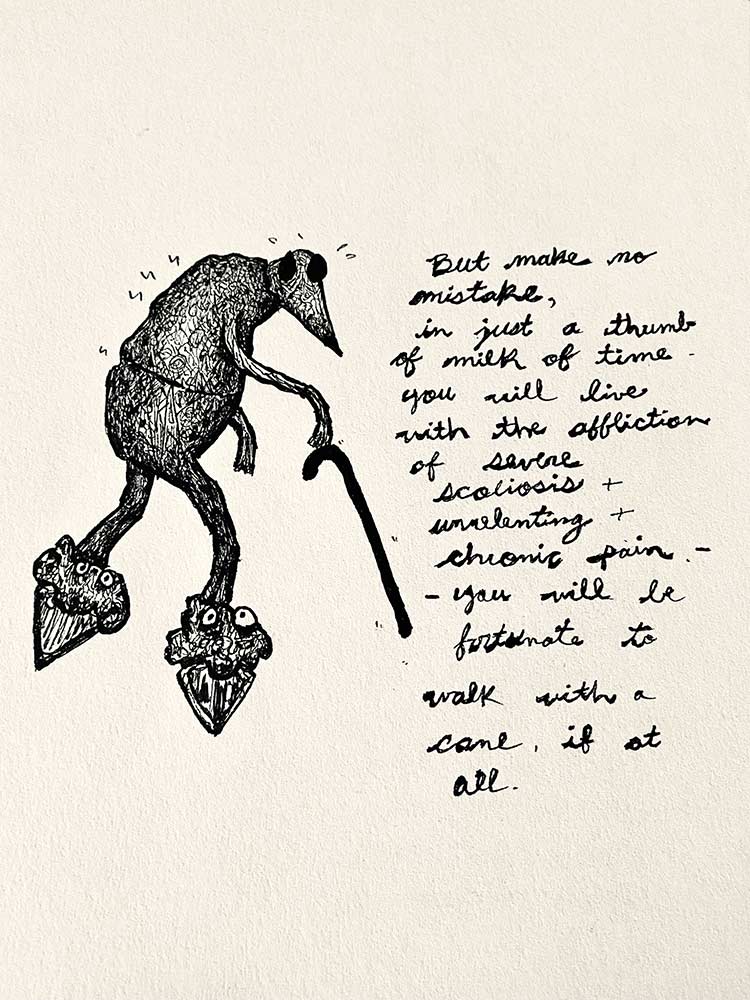 But make no
mistake,
in just a thumb
of milk of time -
you will live
with the affliction
of severe
scoliosis +
unrelenting +
chronic pain. -
- you will be
fortunate to
walk with a
cane, if at
all.